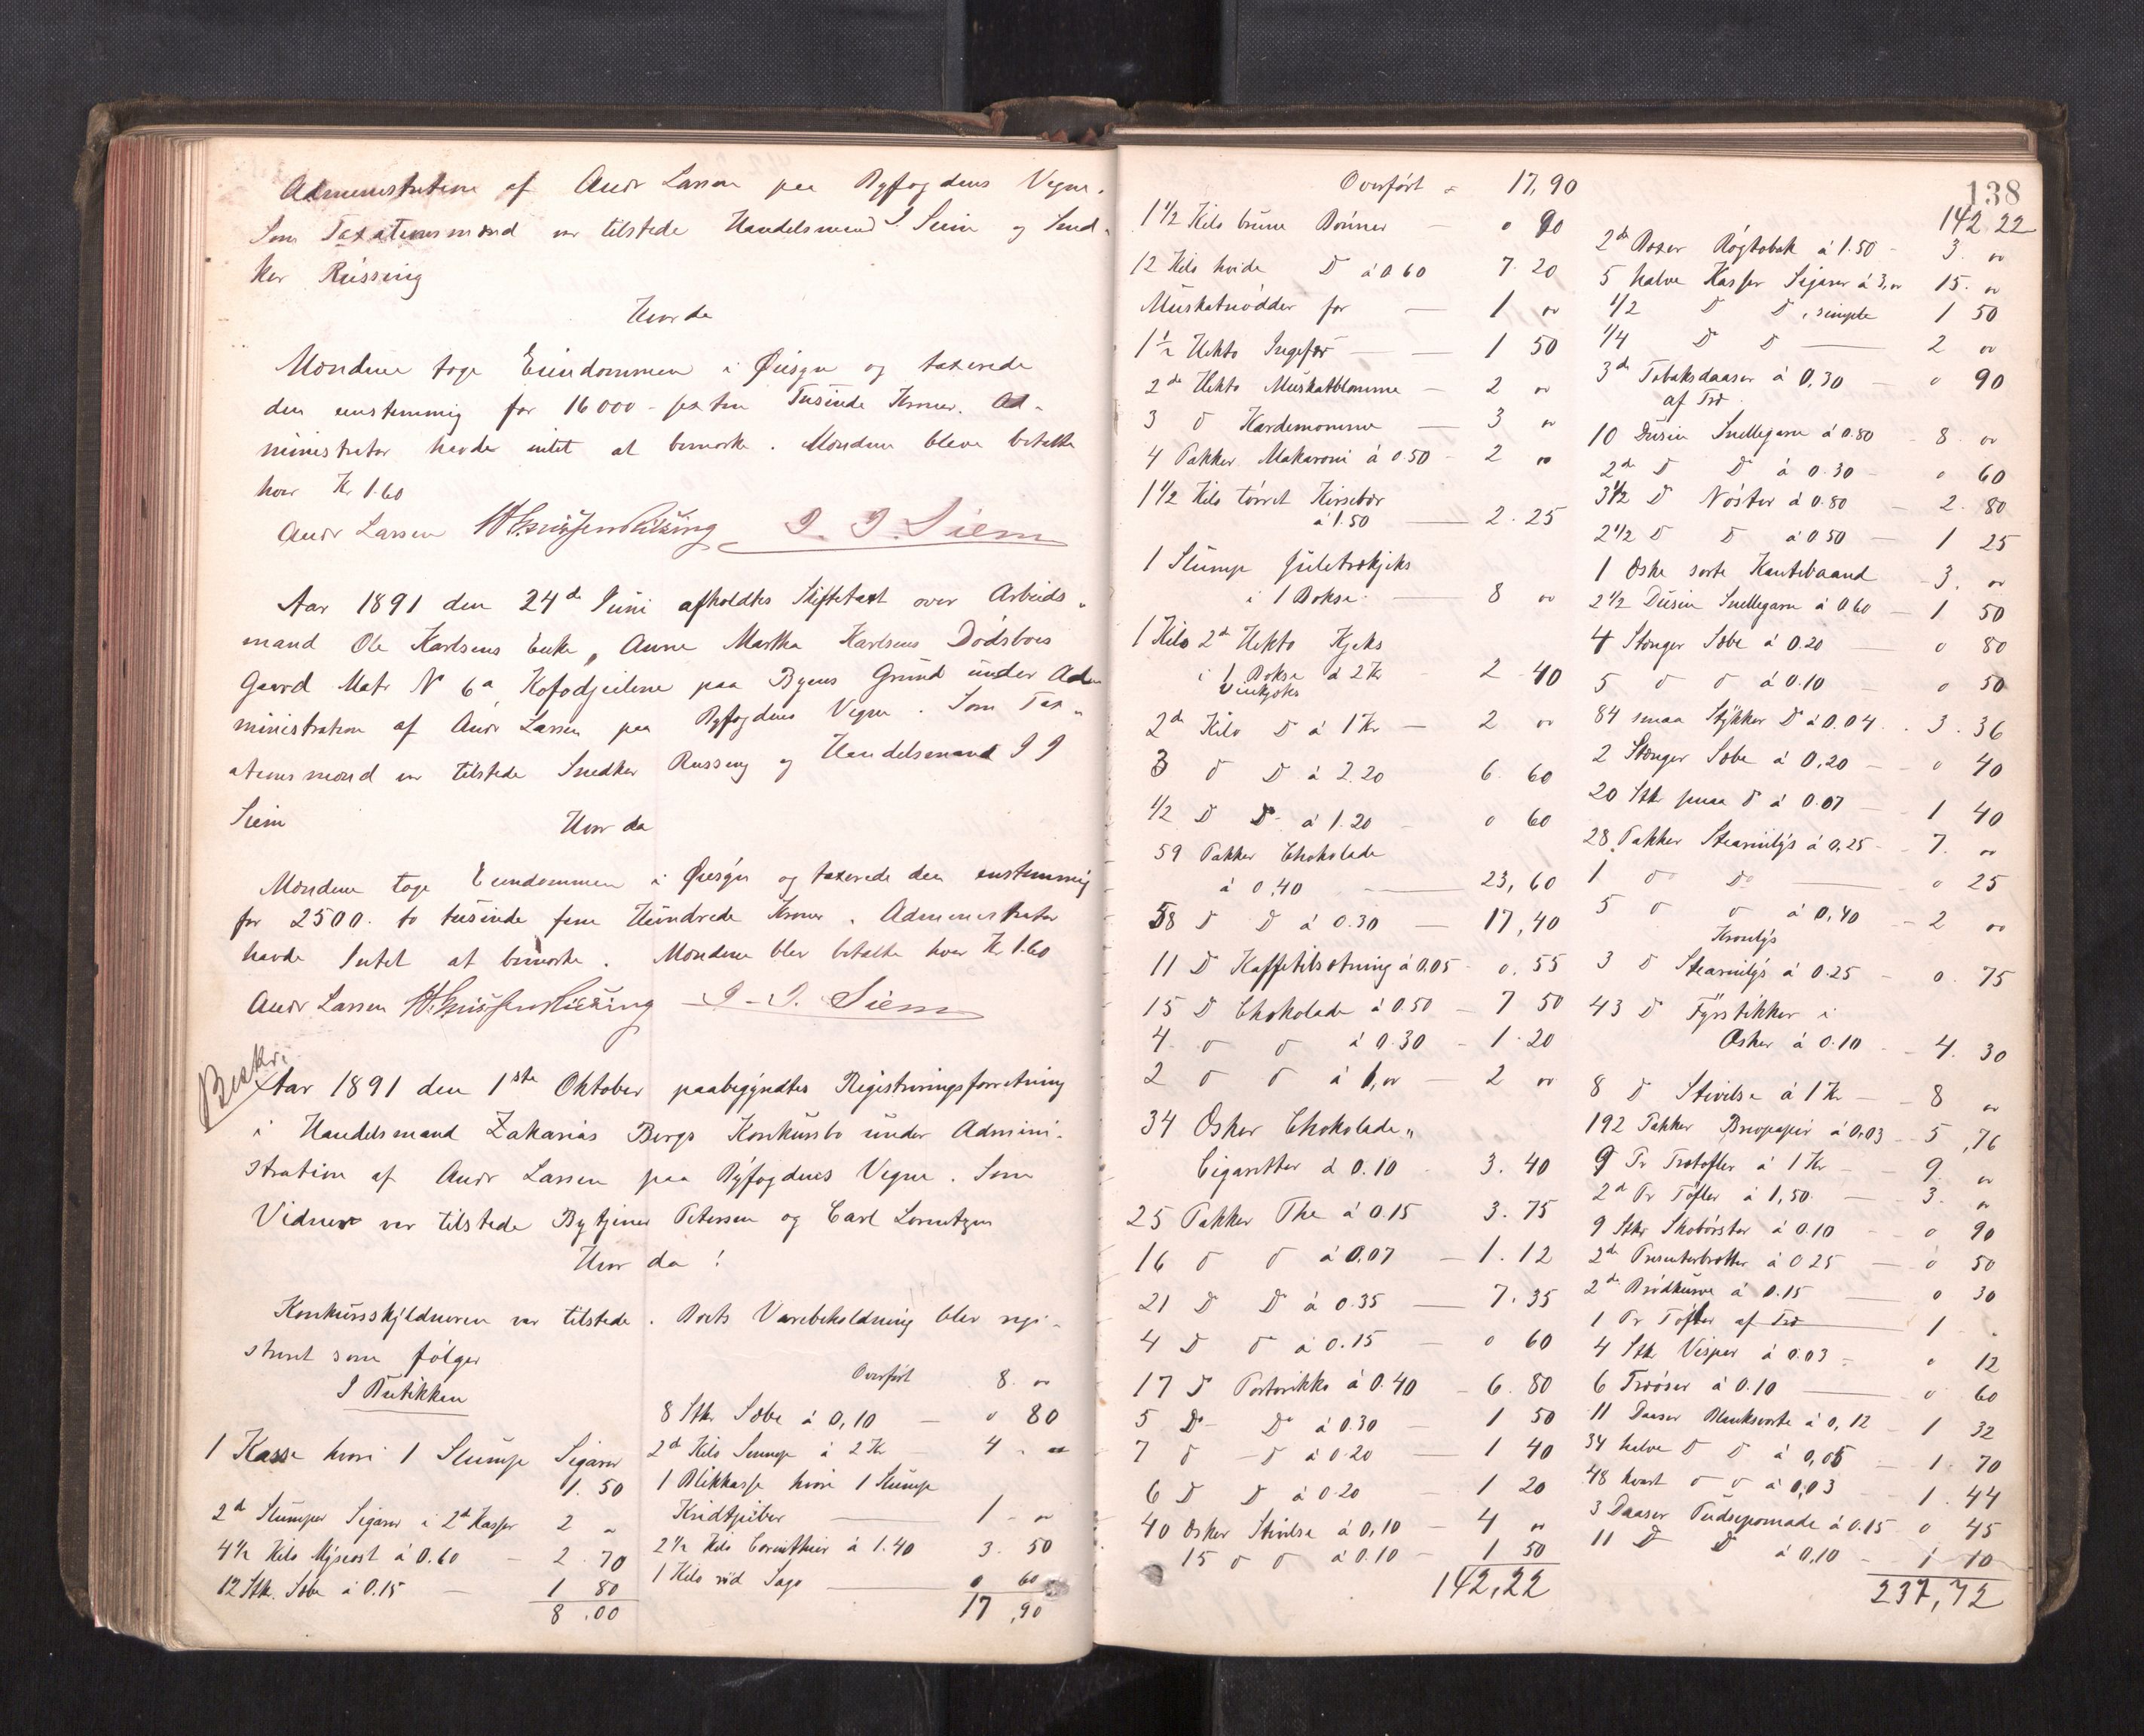 Administration af Andr Larsen paa Byfogdens Vegne.
Som Taxationsmænd var tilstede Handelsmand I Siem og Sned-
ker Rüssing
Hvor da
Mændene toge Eiendommen i Øiesyn og taxerede
den enstemmig for 16000 - sexten Tusinde Kroner. Ad-
ministrator havde intet at bemærke. Mændene bleve betalte
hver Kr 1.60
Andr Larsen I. I. Siem
Aar 1891 den 24de Juni afholdtes Skiftetaxt over Arbeids-
mand Ole Karlsens Enke, Anne Martha Karlsens Dødsboes
Gaard Matr N 6a Kofodjeilene paa Byens Grund under Ad-
ministration af Andr Larsen paa Byfogdens Vegne. Som Tax-
ationsmænd var tilstede Snedker Russing og Handelsmand I I
Siem
Hvor da
Mændene toge Eiendommen i Øiesyn og taxerede den enstemmig
for 2500. to tusinde fem Hundrede Kroner. Administrator
havde Intet at bemærke. Mændene blev betalte hver Kr 1.60
Andr Larsen I. I. Siem
Beskr.
Aar 1891 den 1ste Oktober paabegyndtes Registreringsforretning
i Handelsmand Zakarias Bergs Konkursbo under Admini-
stration af Andr Larsen paa Byfogdens Vegne. Som
Vidner var tilstede Bytjener Petersen og Carl Lorentzen
Hvor da!
Konkursskyldneren var tilstede. Boets Varebeholdning blev regi-
streret som følger
I Butikken
1 Kasse hvori 1 Slump Sigarer
1.50
2d Slumper Sigarer i 2d Kasser 2 "
4½ Kilo Mysost á 0.60 - 2.70
12 Stk. Sæbe á 0.15 - 1 80
8.00
Overført 8. "
8 Stk Sæbe á 0,10 - " 80
2d Kilo Sennep á 2 Kr - 4 - "
1 Blikkasse hvori 1 Slump
Kridtpiber 1 - "
2½ Kilo Corinthier á 1.40 3. 50
1 Kilo rød Sago 0 60
17,90
138
Overført 17,90
1½ Kilo brune Bønner - 0 90
12 Kilo hvide D á 0 60 7.20
Muskatnødder for - 1 "
1½ Hekto Ingefær - 1 50
2de Hekto Muskatblomme - 2 "
3 D Kardemomme - 3 "
4 Pakker Makaroni á 0.50 - 2 "
1½ Kilo tørret Kirsebær
á 1.50 - 2.25
1 Slump Juletrækjeks
i 1 Bokse - 8 "
1 Kilo 2d Hekto Kjeks
i 1 Bokse á 2 Kr 2 40
Vinkjæks
2de Kilo D á 1 Kr - 2 "
3 D D á 2.20 6.60
½ D D á 1.20 - 0 60
59 Pakker Chokolade
á 0,40 - 23,60
58 D D á 0.30 - 17,40
11 D Kaffetilsætning á 0.05 - 0.55
15 D Chokolade á 0.50 - 7 50
4 D D á 0.30 - 1.20
2 D D á 1," - 2 "
34 Æsker Chokolade"
Cigaretter á 0.10 3.40
25 Pakker The á 0.15 3.75
16 D D á 0,07 - 1.12
21 D D á 0.35 - 7.35
4 D D á 0.15 - 0 60
17 D Portorikko á 0.40 - 6.80
5 D D á 0.30 - 1 50
7 D D á 0.20 - 1 40
6 D D á 0.20 - 1 20
40 Æsker Stivelse á 0,10 - 4 "
15 D D á 0.10 - 1 50
142,22
142 22
2de Boxer Røgtobak á 1.50 - 3. "
5 halve Kasser Sigarer á 3," 15. "
½ D D, simple 1 50
¼ D D - 2 "
3de Tobaksdaaser á 0,30 - 0 90
af Træ
10 Dusin Snellegarn á 0.80 - 8 "
2de D D á 0.30 - 0 60
3½ D Nøster á 0.80 - 2.80
2½ D D á 0 50 - 1 25
1 Æske sorte Kantebaand - 3. "
2½ Dusin Snellegarn á 0.60 - 1 50
4 Stænger Sæbe á 0.20 - 0 80
5 D D á 0.10 - 0 50
84 smaa Stykker D á 0.04. 3.36
2 Stænger Sæbe á 0,20 - 0 40
20 Stk smaa D á 0.07 - 1 40
28 Pakker Stearinlys á 0,25 - 7. "
1 D D - 0 25
5 D D á 0,40 - 2 "
Kronlys
3 D Stearinlys á 0.25 - 0.75
43 D Fyrstikker i
Æsker á 0.10 - 4.30
8 D Stivelse á 1 Kr - 8 "
192 Pakker Brevpapir á 0,03 - 5,76
9 Pr Trætofler á 1 Kr - 9. "
2d Pr Tøfler á 1,50. - 3. "
9 Stkr Skobørster á 0.10 - 0 90
2de Presenterbretter á 0 25 - 0 50
2de Brødkurve á 0.15 - 0 30
1 Pr Tøfler af Træ 1 "
4 Stk Visper á 0.03 - 0 12
6 Træøser á 0.10 - 0 60
11 Daaser Blanksverte á 0,12 - 1 32
34 halve D D á 0,05 - 1.70
48 kvart D D á 0,03 - 1.44
3 Daaser Pudsepomade á 0.15 0 45
11 D D á 0,10 - 1 10
237,72